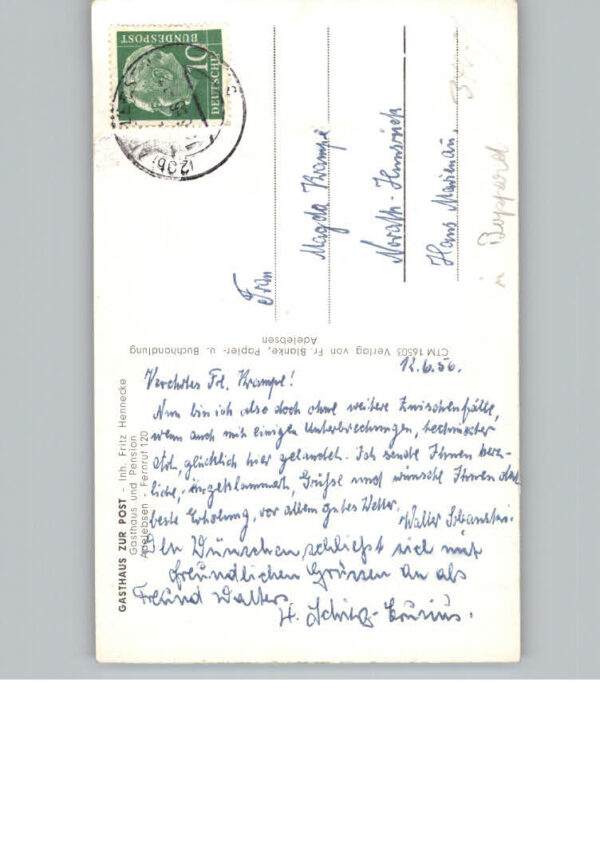 DEUTSCHE
BUNDESPOST
10
Frau
Magda Krampe
Hans Marienau,
Boppard
CTM 16503 Verlag von Fr. Blanke, Papier- u. Buchhandlung
Adelebsen
GASTHAUS ZUR POST - Inh. Fritz Hennecke
Gasthaus und Pension
Adelebsen - Fernruf 120
12.6.56.
Verehrtes Frl. Krampe!
Nun bin ich also doch ohne weitere Zwischenfälle,
wenn auch mit einigen Unterbrechungen, technischer
Art, glücklich hier gelandet. Ich sende Ihnen herz-
liche, Grüße und wünsche Ihnen
beste Erholung, vor allem gutes Wetter.
Walter
Den Wünschen schließt sich mit
freundlichen Grüssen an als
Freund Walters
H.